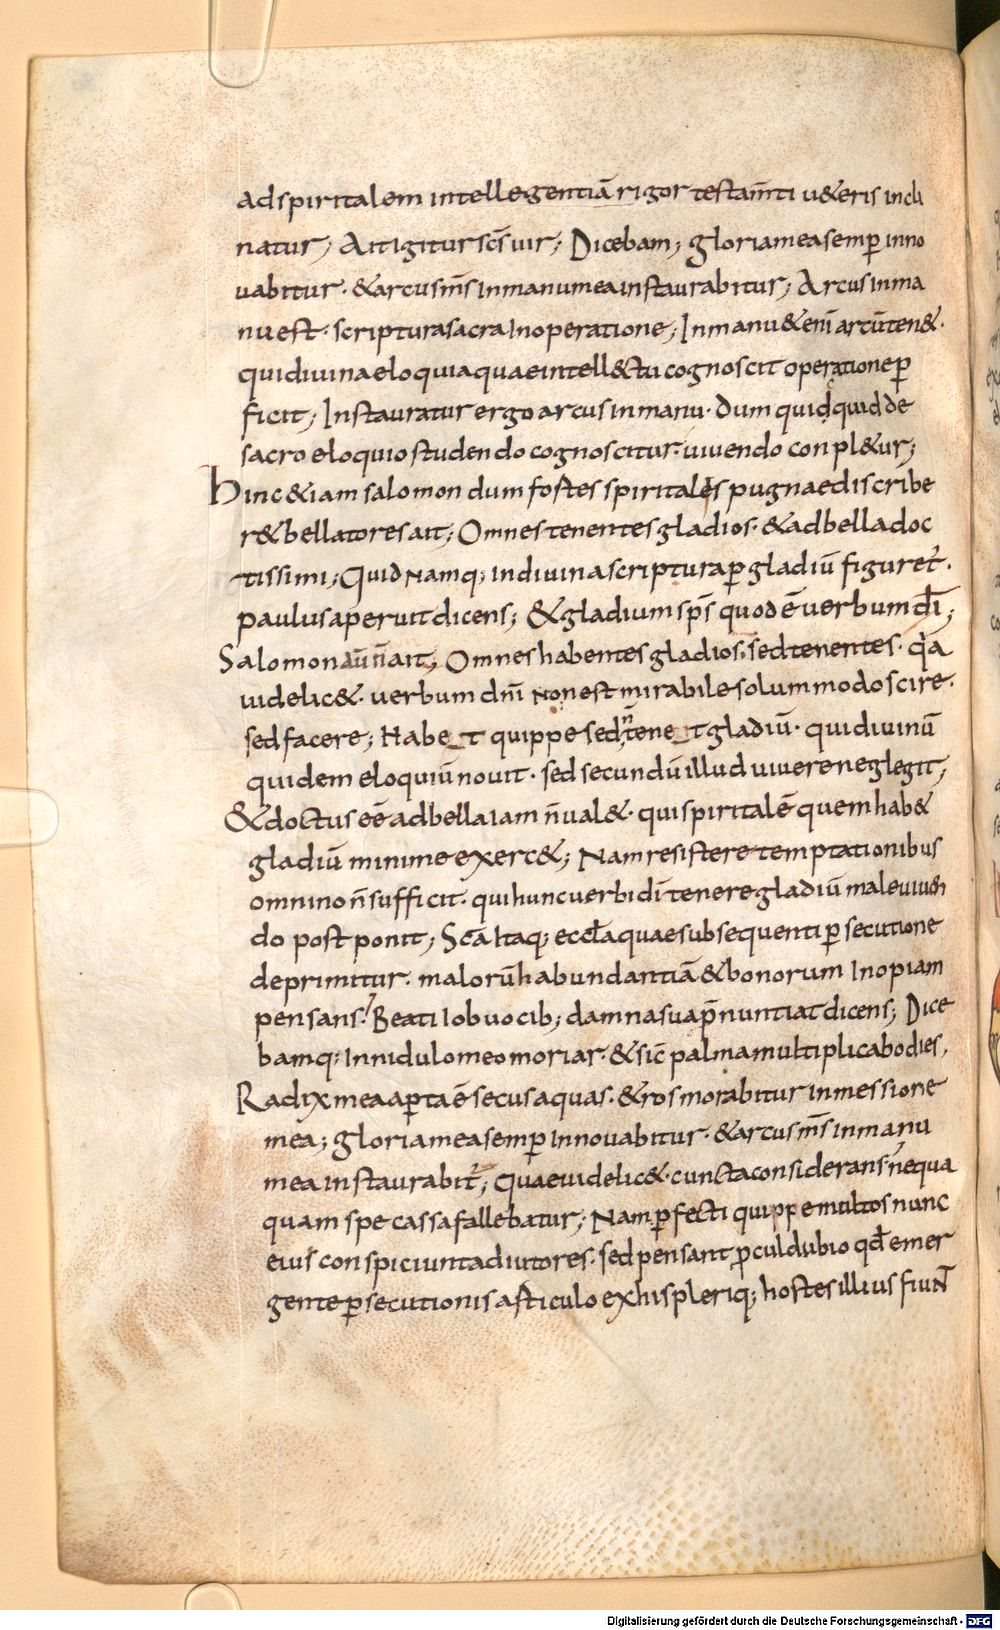 ad spiritalem intellegentiā rigor testam̄ti u&eris incli
natur; Ait igitur sc̄s uir; Dicebam; gloria mea semp̲ inno
uabitur · & arcus m̄s in manu mea instaurabitur; Arcus in ma
nu est · scriptura sacra In operatione; In manu &eni̅ arcū ten& ·
qui diuina eloquia quae intell&tu cognoscit operatione p̲
ficit; Instauratur ergo arcus in manu · Dum quidquid de
sacro eloquio studendo cognoscitur · uiuendo conpl&ur;
hinc &iam salomon dum fostes spiritales pugnae discribe
r& bellatores ait; Omnes tenentes gladios · & ad bella doc
tissimi; Quid Namq; in diuina scriptura p̲ gladiū figuret̉ ·
paulus aperuit dicens; & gladium sp̄s quod ē uerbum dī;
Salomon aūn̄ ait; Omnes habentes gladios · sed tenentes · q̉a
uidelic& · uerbum dn̄i non est mirabile solummodo scire ·
sed facere; Habe t quippe sed n̄ tene t gladiū · qui diuinū
quidem eloquiū nouit · sed secundū illud uiuere neglegit;
& doctus eē ad bella iam n̄ ual& · qui spiritalē quem hab&
gladiū minime exerc&; Nam resistere temptationibus
omnino n̄ sufficit · qui hunc uerbi dī tenere gladiū male uiuen
do postponit; Sc̄a Itaq; eccƚa quae subsequenti p̲secutione
deprimitur · malorū habundantiā & bonorum Inopiam
pensans · Beati Iob uocib; damna sua p̄nuntiat dicens; Dice
bamq; In nidulo meo moriar · & sic̄ palma multiplicabo dies,
Radix mea ap̲ta ē secus aquas · & ros morabitur in messione
mea; gloria mea semp̲ Innouabitur · & arcus m̄s in manu
mea instaurabit̉; Quae uidelic& · cuncta considerans · nequa
quam spe cassa fallebatur; Nam p̲fecti quippe multos nunc
eius conspiciunt adiutores · sed pensant p̲culdubio qđ emer
gente p̲secutionis articulo ex his pleriq; hostes illius fiunt